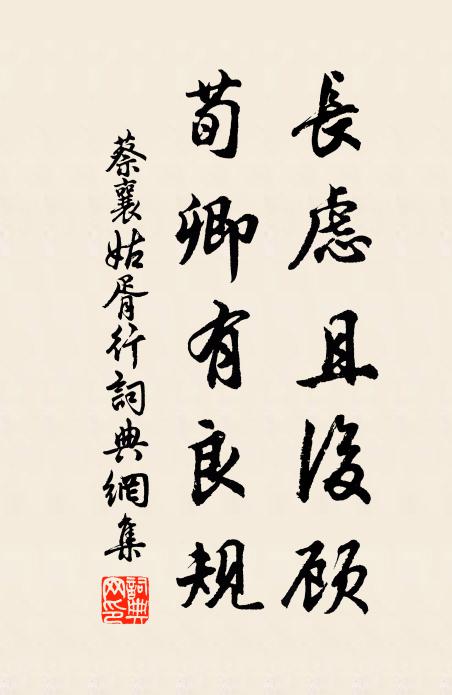 長慮且後顾
荀卿有良規
蔡襄姑胥行詞典網集
詞典网印